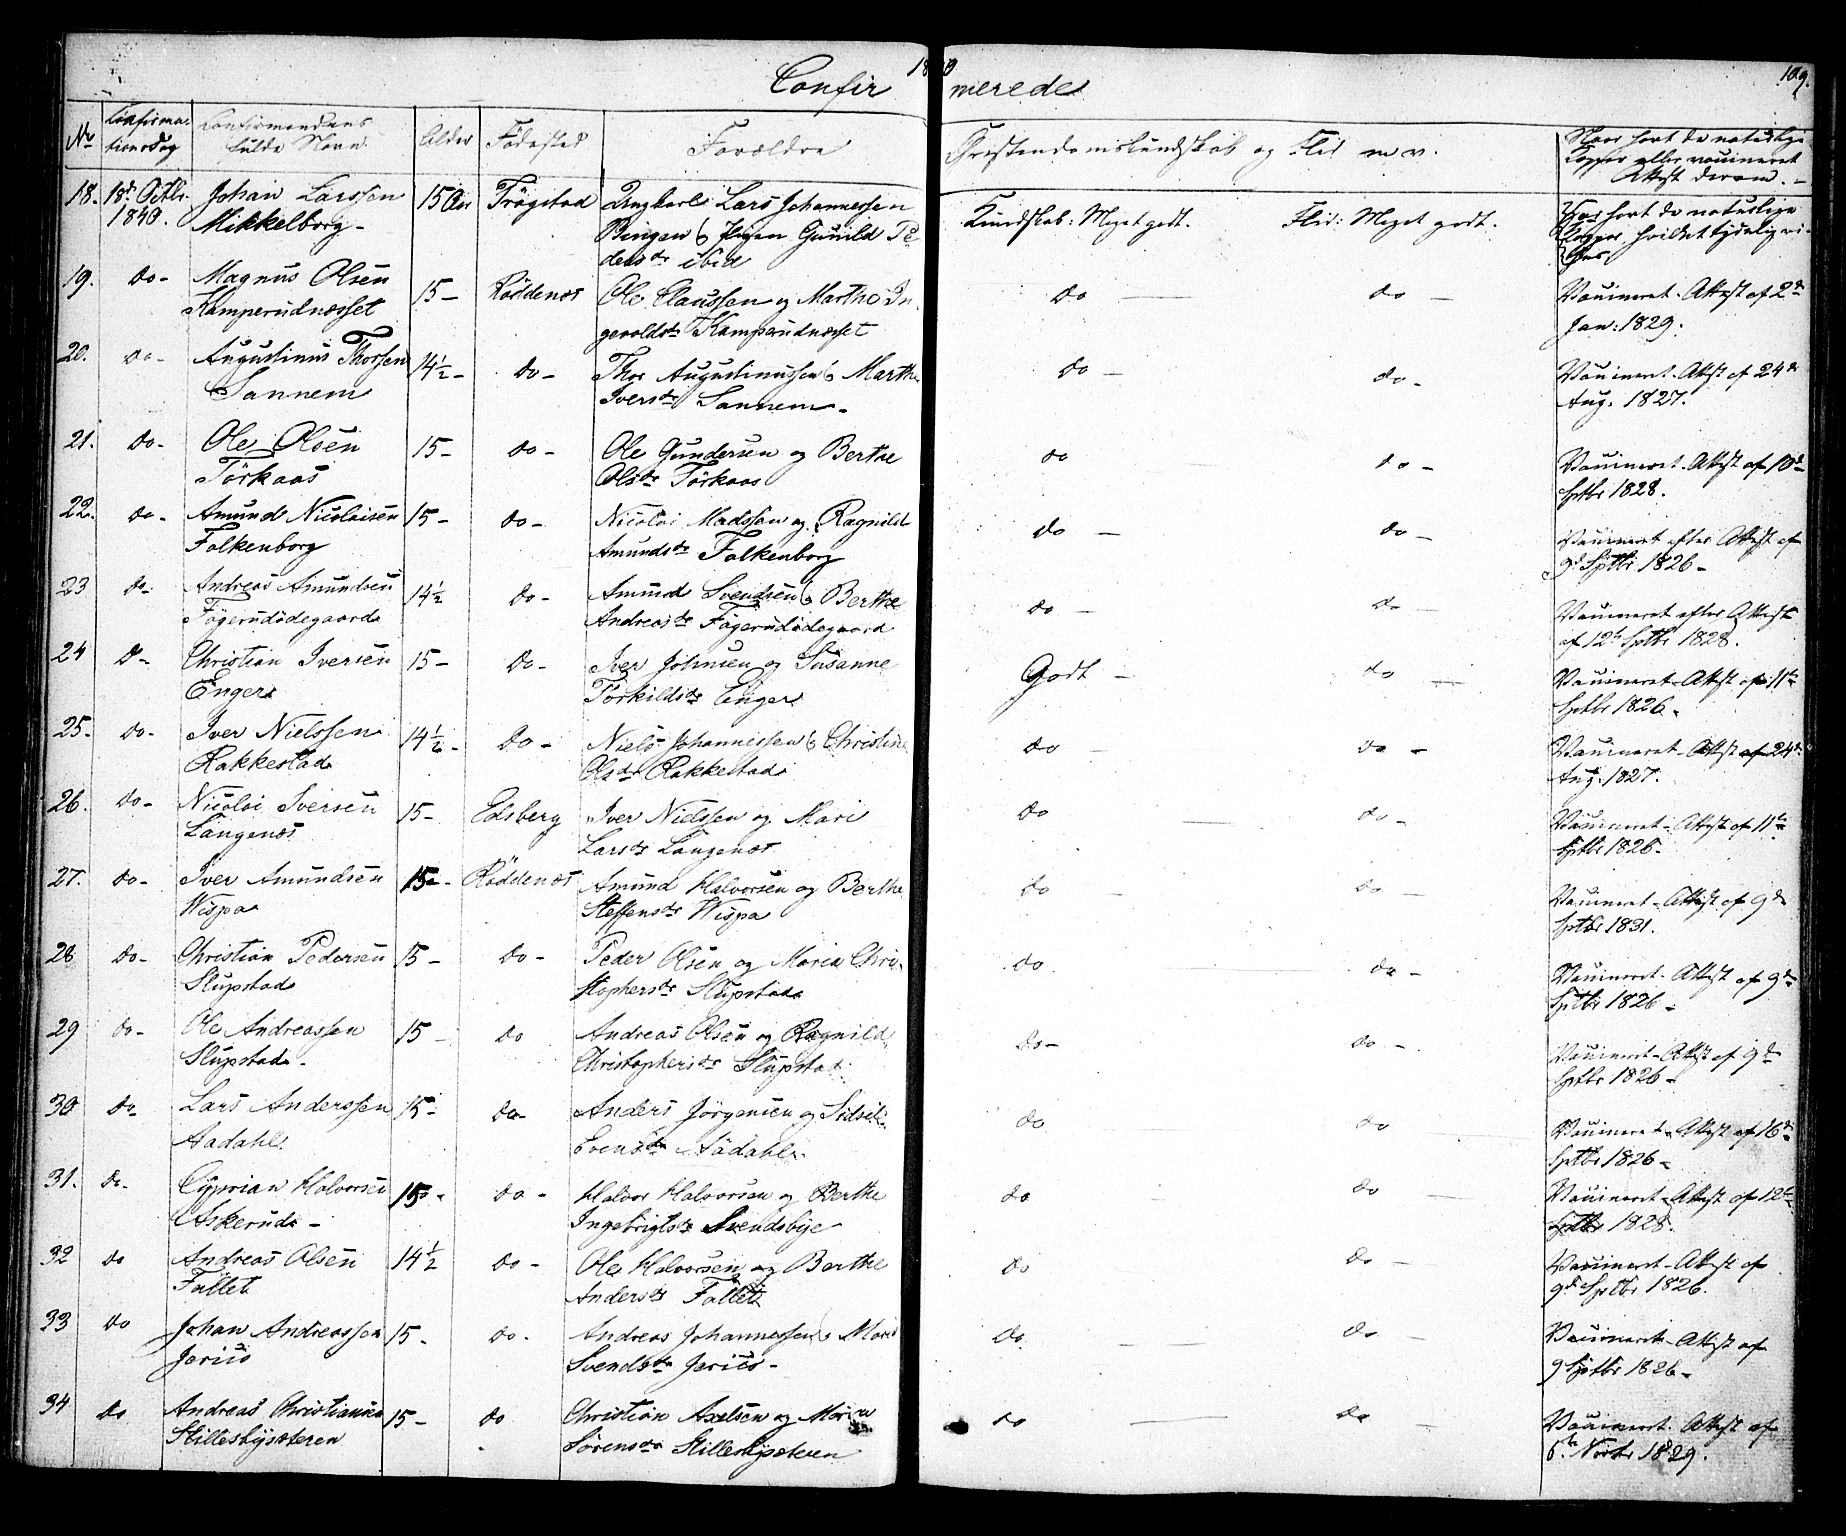 1840
109.
Confirmerede
No Confirmationsdag Confirmandens fulde Navn Alder Födested Forældre Christendomskundskab og Flid m. v. Naar havt de naturlige Kopper eller vaccineret Attest derom. -
18. 18de Octbr. 1840. Johan Larssen Mikkelborg - 15 Aar Trögstad Ungkarl Lars Johannessen Bingen & Pigen Gunild Pedersdr ibid Kundskab: Meget godt. Flid: Meget godt. Har havt de naturlige Kopper, hvilket tydelig vises
19. do - Magnus Olsen Kamperudnæsset 15 - Röddenæs Ole Claussen og Marthe Ingevoldsdr Kamperudnæsset do - do - Vaccineret. Attest af 2den Jan: 1829.
20. do - Augustinus Thorsen Sannem 14½ - do - Thor Augustinussen & Marthe Iversdr Sannem - do - do - Vaccineret. Attest af 24de Aug. 1827.
21. do - Ole Olsen Törkaas 15 - do - Ole Gundersen og Berthe Olsdr Törkaas do do - Vaccineret. Attest af 10de Sptbr 1828.
22. do - Amund Nicolaisen Falkenborg 15 - do - Nicolai Madssen og Ragnild Amundsdr Falkenborg do - do - Vaccineret efter Attest af 9de Sptbr 1826 -
23 do - Andreas Amundsen Fögerudödegaard 14½ do - Amund Svendsen & Berthe Andreasdr Fögerudödegaard do - do - Vaccineret efter Attest af 12te Sptbr 1828.
24 do - Christian Iversen Enger 15 - do - Iver Johnsen og Susanne Törkildsdr Enger Godt - do - Vaccineret. Attest af 11te Sptbr 1826 -
25. do - Iver Nielssen Rakkestad 14½ - do - Niels Johannessen & Christine Olsdr Rakkestad do - do - Vaccineret - Attest af 24de Aug. 1827.
26. do - Nicolai Iversen Langenæs 15 - Edsberg Iver Nielssen og Mari Larsdr Langenæs do - do - Vaccineret - Attest af 11te Sptbr 1826 -
27. do - Iver Amundsen Wispa 15 - Röddenæs Amund Halvorsen og Berthe Steffensdr Wispa do - do - Vaccineret - Attest af 9de Sptbr 1831.
28 do - Christian Pedersen Slupstad 15 - do - Peder Olsen og Maria Christophersdr Slupstad do - do - Vaccineret. Attest af 9de Sptbr 1826 -
29 do - Ole Andreassen Slupstad - 15 - do Andreas Olsen og Ragnild Christophersdr Slupstad do - do - Vaccineret - Attest af 9de Sptbr 1826 -
30 do - Lars Anderssen Aadahl 15 - do - Anders Jörgensen og Sidsel Svensdr Aadahl - do do Vaccineret - Attest af 16de Sptbr 1826 -
31. do - Cyprian Halvorsen Askerud - 15 - do - Halvor Halvorsen og Berthe Ingebrigtsdr Svendsbye do - do - Vaccineret - Attest af 12te Sptbr 1828.
32 do Andreas Olsen Fallet 14½ do - Ole Halvorsen og Berthe Andersdr Fallet do do - Vaccineret - Attest af 9de Sptbr 1826.
33 do Johan Andreassen Jerico 15 - do - Andreas Johannessen & Mari Svendsdr Jerico - do. - do - Vaccineret - Attest af 9 Sptbr 1826 -
34 do Andreas Christiansen Stillesbysæteren 15 - do Christian Axelsen og Maren Sörensdr Stillesbysæteren do - do - Vaccineret. Attest af 6te Novbr 1829.